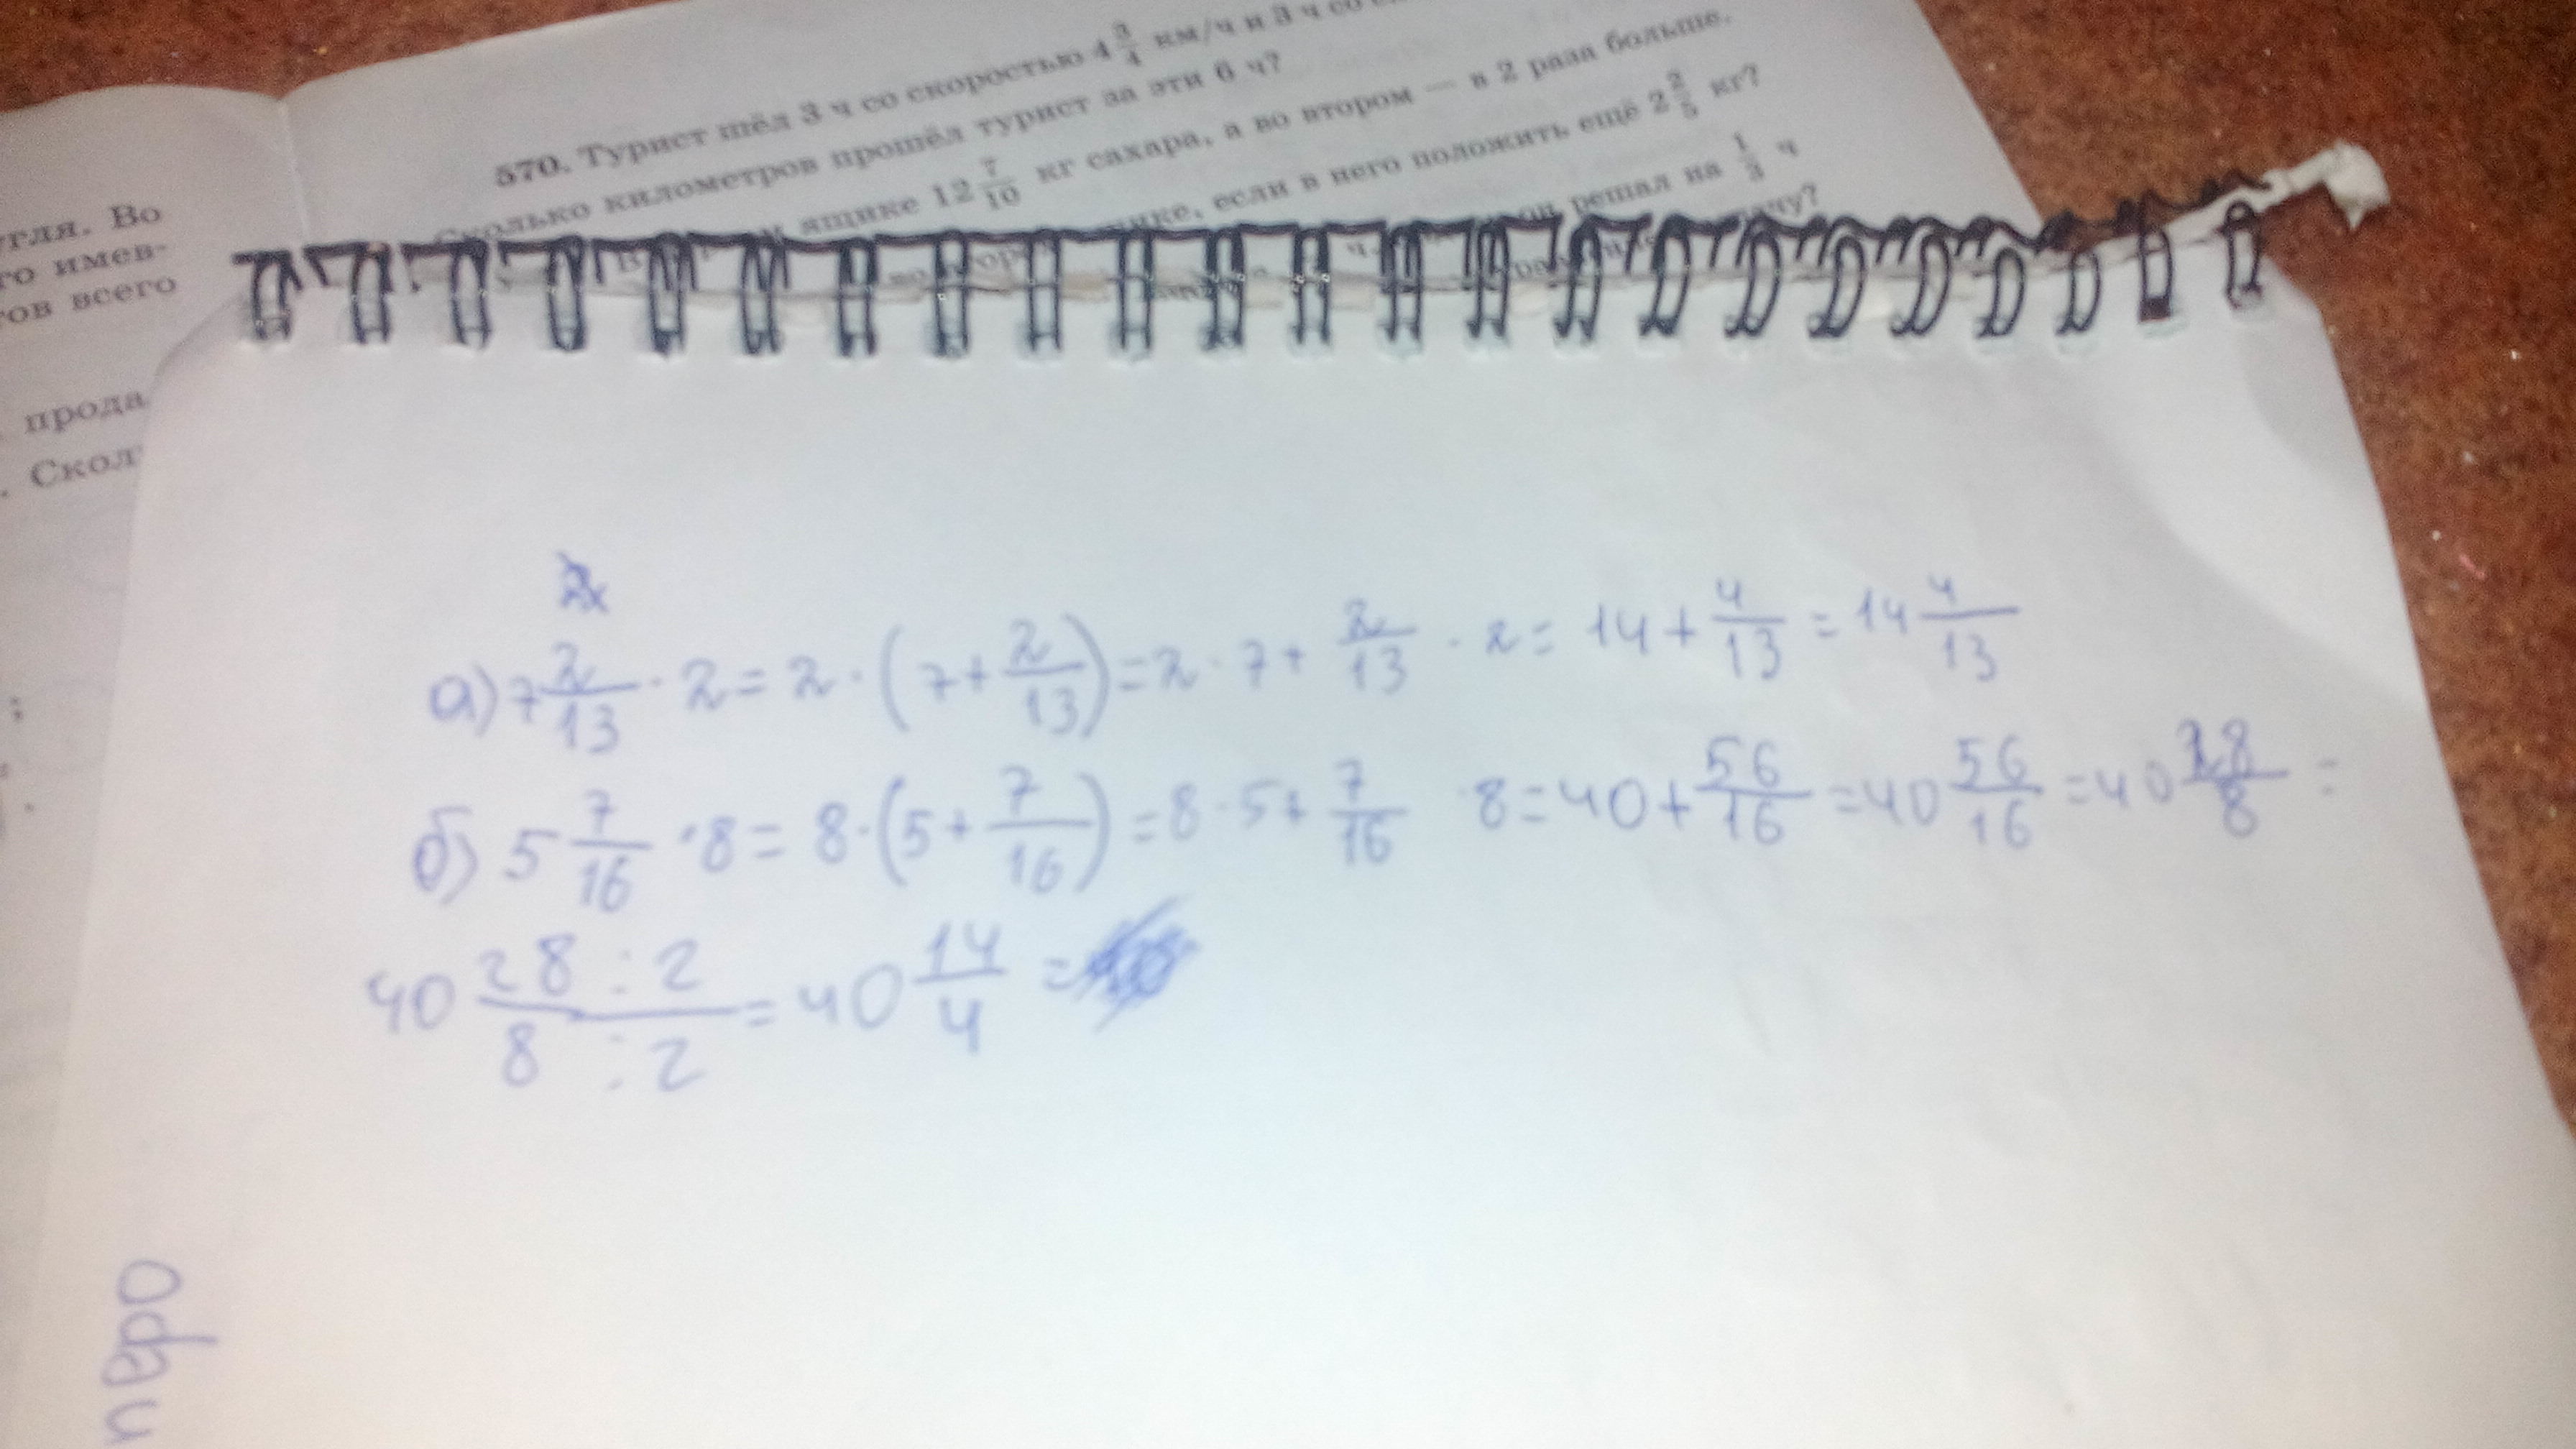 570. Турист шёл 3 ч со скоростью 4 3/4 км/ч и 3 ч со
Сколько километров прошёл турист за эти 6 ч?
ящике 12 7/10 кг сахара, а во втором — в 2 раза больше.
если в него положить ещё 2 2/5 кг?
он решал на 1/3 ч
Во
го имев-
тов всего
прода
. Скол
;
а) 7 2/13 · 2 = 2 · (7 + 2/13) = 2 · 7 + 2/13 · 2 = 14 + 4/13 = 14 4/13
б) 5 7/16 · 8 = 8 · (5 + 7/16) = 8 · 5 + 7/16 · 8 = 40 + 56/16 = 40 56/16 = 40 28/8 =
40 28 : 2 / 8 : 2 = 40 14/4 =